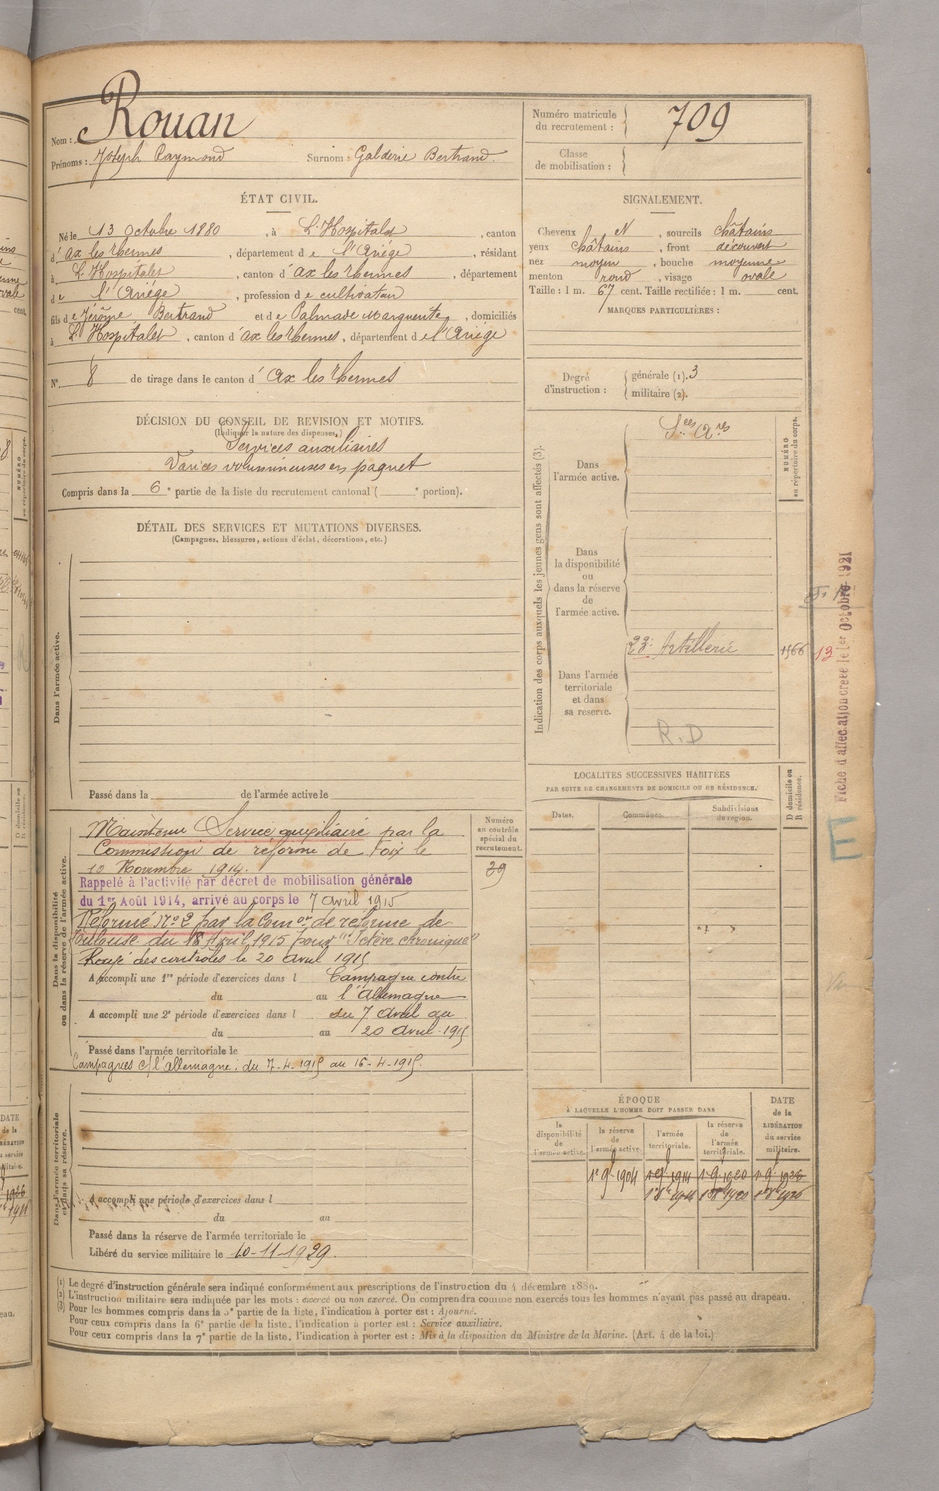 Nom : Rouan
Prénoms : Joseph Raymond Surnom : Galderie Bertrand
Numéro matricule du recrutement : 709
Classe de mobilisation :
ÉTAT CIVIL.
Né le 13 Octobre 1880, à L'Hospitalet, canton
d'ax les thermes, département de l'Ariège, résidant
à L'Hospitalet, canton d'ax les thermes, département
de l'Ariège, profession de cultivateur
fils de Jérôme Bertrand et de Palmade Marguerite, domiciliés
à L'Hospitalet, canton d'ax les thermes, département de l'Ariège
N° 8 de tirage dans le canton d'ax les thermes
SIGNALEMENT.
Cheveux N, sourcils châtains
yeux châtains, front découvert
nez moyen, bouche moyenne
menton rond, visage ovale
Taille : 1 m. 67 cent. Taille rectifiée : 1 m. cent.
MARQUES PARTICULIÈRES :
Degré d'instruction : générale (1). 3
militaire (2).
DÉCISION DU CONSEIL DE REVISION ET MOTIFS.
(Indiquer la nature des dispenses.)
Services auxiliaires
Varices volumineuses en paquet
Compris dans la 6e partie de la liste du recrutement cantonal ( e portion).
DÉTAIL DES SERVICES ET MUTATIONS DIVERSES.
(Campagnes, blessures, actions d'éclat, décorations, etc.)
Dans l'armée active.
Passé dans la de l'armée active le
Indication des corps auxquels les jeunes gens sont affectés (3).
NUMÉRO au répertoire du corps.
Dans l'armée active.
Ses Ares
Dans la disponibilité ou dans la réserve de l'armée active.
Dans l'armée territoriale et dans sa réserve.
23e Artillerie 1566 13
R.D
Fiche d'affectation créée le 1er Octobre 1921
E
LOCALITÉS SUCCESSIVES HABITÉES
PAR SUITE DE CHANGEMENTS DE DOMICILE OU DE RÉSIDENCE.
Dates. Communes. Subdivisions de région. D domicile ou R résidence.
Dans la disponibilité ou dans la réserve de l'armée active.
Numéro au contrôle spécial du recrutement.
29
Maintenu Service auxiliaire par la
Commission de réforme de Foix le
10 Novembre 1914.
Rappelé à l'activité par décret de mobilisation générale
du 1er Août 1914, arrivé au corps le 7 avril 1915
Réformé N° 2 par la Comon de réforme de
Toulouse du 18 Avril 1915 pour "Ictère chronique"
Rayé des contrôles le 20 avril 1915
A accompli une 1re période d'exercices dans l Campagne contre
du au l'Allemagne
A accompli une 2e période d'exercices dans l du 7 avril au
du au 20 avril 1915
Passé dans l'armée territoriale le
Campagnes c/ l'allemagne : du 7-4-1915 au 16-4-1915.
Dans l'armée territoriale et dans sa réserve.
A accompli une période d'exercices dans l
du au
Passé dans la réserve de l'armée territoriale le
Libéré du service militaire le 10-11-1929.
ÉPOQUE
À LAQUELLE L'HOMME DOIT PASSER DANS
DATE de la LIBÉRATION du service militaire.
la disponibilité de l'armée active. la réserve de l'armée active. l'armée territoriale. la réserve de l'armée territoriale.
1er 9 1904 1er 9 1914 1er 9 1920 1er 9 1926
(1) Le degré d'instruction générale sera indiqué conformément aux prescriptions de l'instruction du 4 décembre 1889.
(2) L'instruction militaire sera indiquée par les mots : exercé ou non exercé. On comprendra comme non exercés tous les hommes n'ayant pas passé au drapeau.
(3) Pour les hommes compris dans la 5e partie de la liste, l'indication à porter est : Ajourné.
Pour ceux compris dans la 6e partie de la liste, l'indication à porter est : Service auxiliaire.
Pour ceux compris dans la 7e partie de la liste, l'indication à porter est : Mis à la disposition du Ministre de la Marine. (Art. 4 de la loi.)